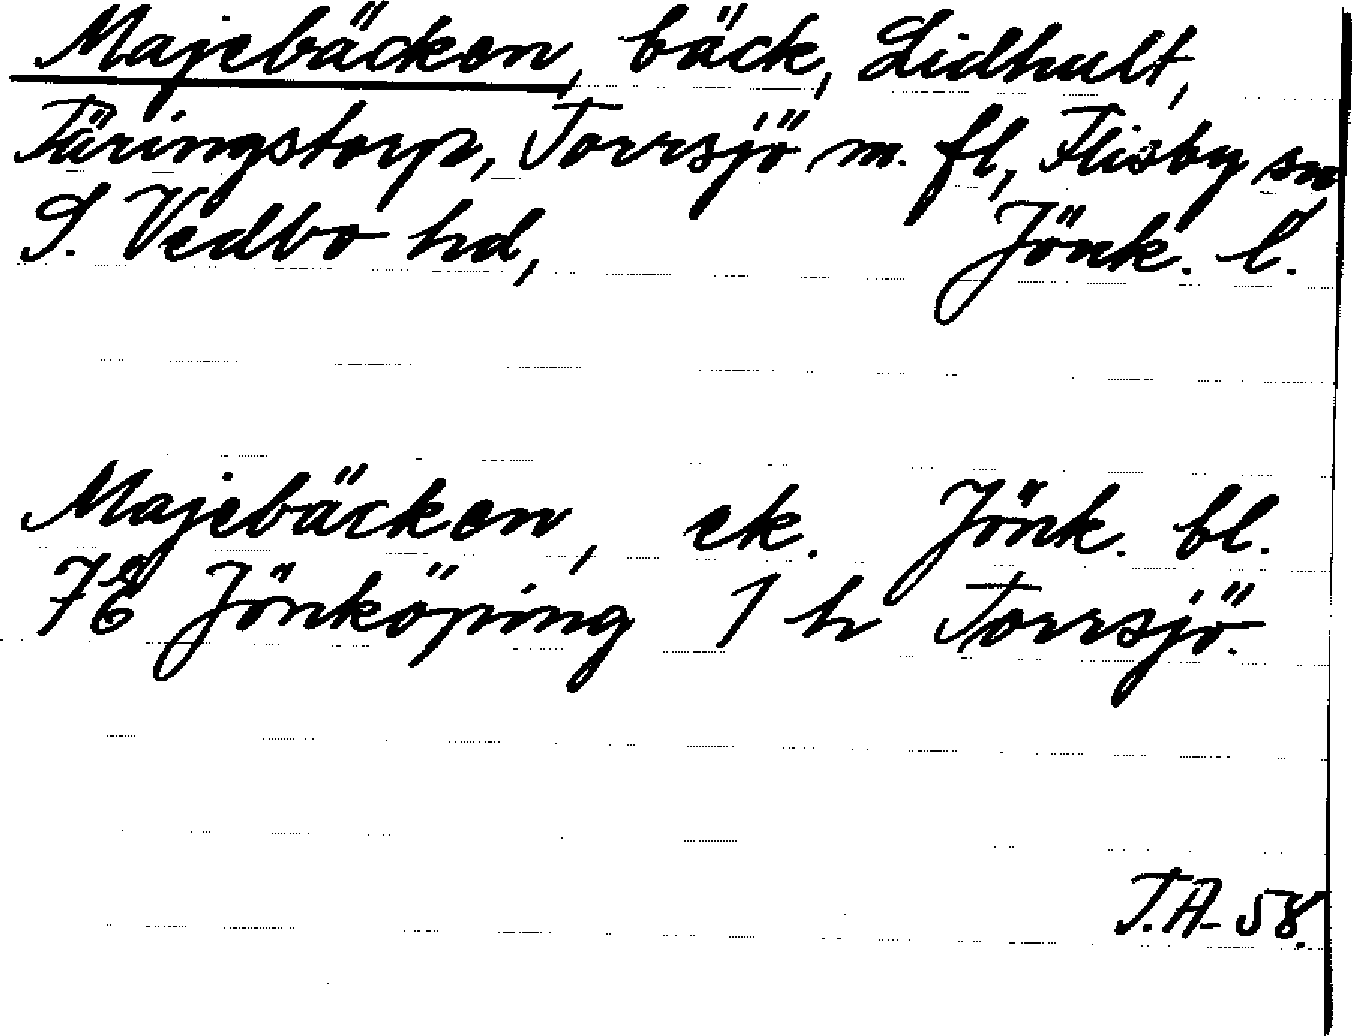 Majebäcken, bäck, Lidhult,
Täringstorp, Torrsjö m. fl, Flisby sn
S. Vedbo hd, Jönk. l.
Majebäcken, ek. Jönk. bl.
7E Jönköping 1 h Torrsjö.
T.A- 58.